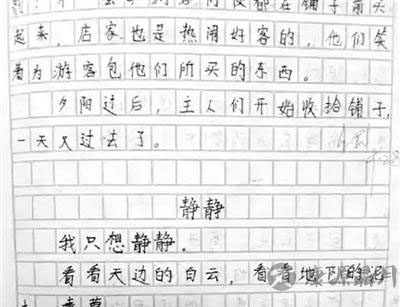 都在铺子前买
起来，店家也是热闹好客的，他们笑
着为游客包他们所买的东西。
夕阳过后，主人们开始收拾铺子，
一天又过去了。
静静
我只想静静。
看看天边的白云，看看地下的
青草